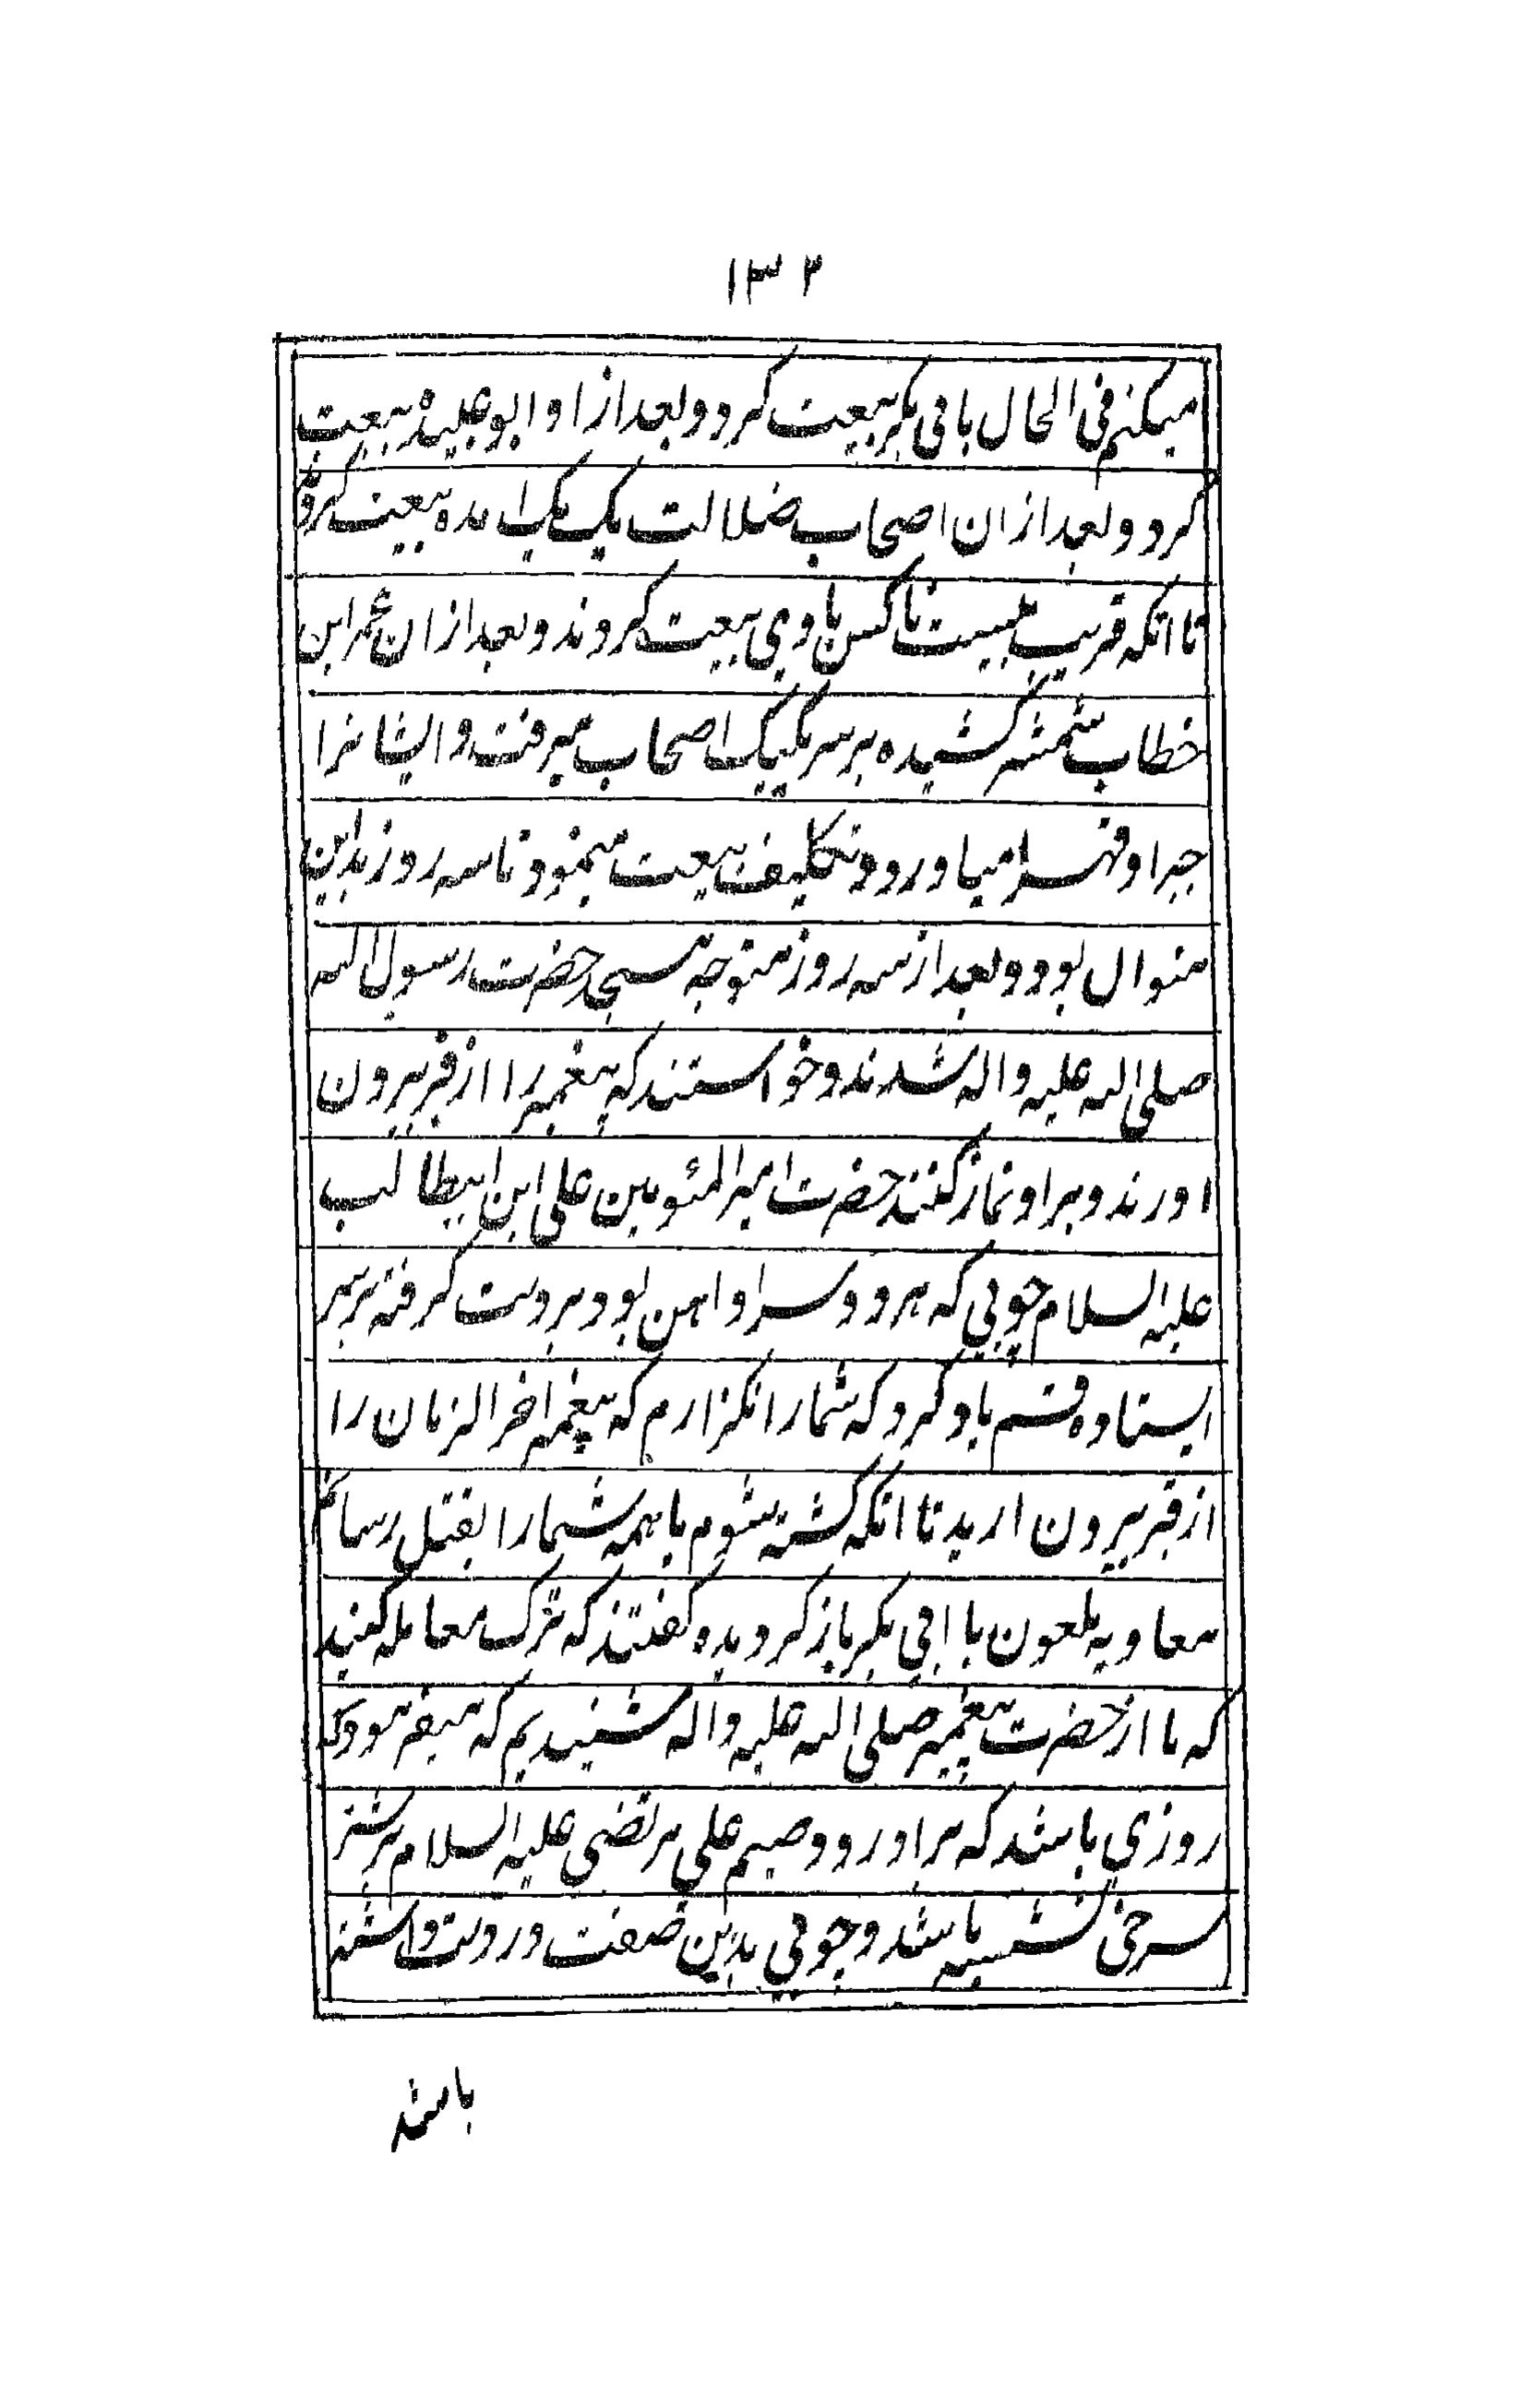 ۱۳۲
میکنم فی الحال بافی بکر بیعت کرد و بعد از او ابو عبیده بیعت
کرد و بعد ازان اصحاب ضلالت یک یک امده بیعت کردند
تا انکه قریب بیست تا کس با وی بیعت کردند و بعد ازان عمر ابن
خطاب شمشیر کشیده بر سر یکیک اصحاب میرفت و ایشانرا
جبرا و قهرا میاورد و تکلیف بیعت مینمود تا سه روز بدین
منوال بود و بعد از سه روز متوجه مسجد حضرت رسول الله
صلی الله علیه و اله شدند و خواستند که پیغمبر را از قبر بیرون
اورند و بر او نماز کنند حضرت امیر المئومین علی ابن ابیطالب
علیه السلام چوبی که هر دو سر او اهن بود بر دست کرفته بر سر
ایستاده قسم یاد کرد که شما را نگزارم که پیغمبر اخر الزمان را
از قبر بیرون ارید تا انکه کشته شوم یا همه شما را بقتل رسانم
معاویه ملعون با ابی بکر باز کردیده کفتند که ترک معامله کنید
که ما از حضرت پیغمبر صلی الله علیه و اله شنیدیم که میفرمود که
روزی باشد که برادر و وصیم علی مرتضی علیه السلام بر شتر
سرخی نشسته باشد و چوبی بدین صفت در دست داشته
باشد